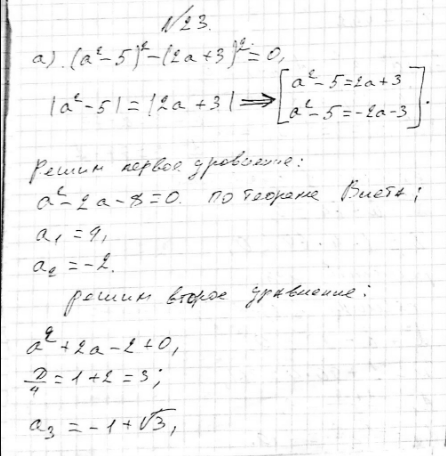 №23.
а). (a²-5)²-(2a+3)²=0,
|a²-5|=|2a+3| ⟹ [a²-5=2a+3
a²-5=-2a-3].
Решим первое уровнение:
a²-2a-8=0. по теореме Виета;
a₁=4,
a₂=-2.
решим второе уравнение:
a²+2a-2+0,
D/4=1+2=3;
a₃=-1+√3,